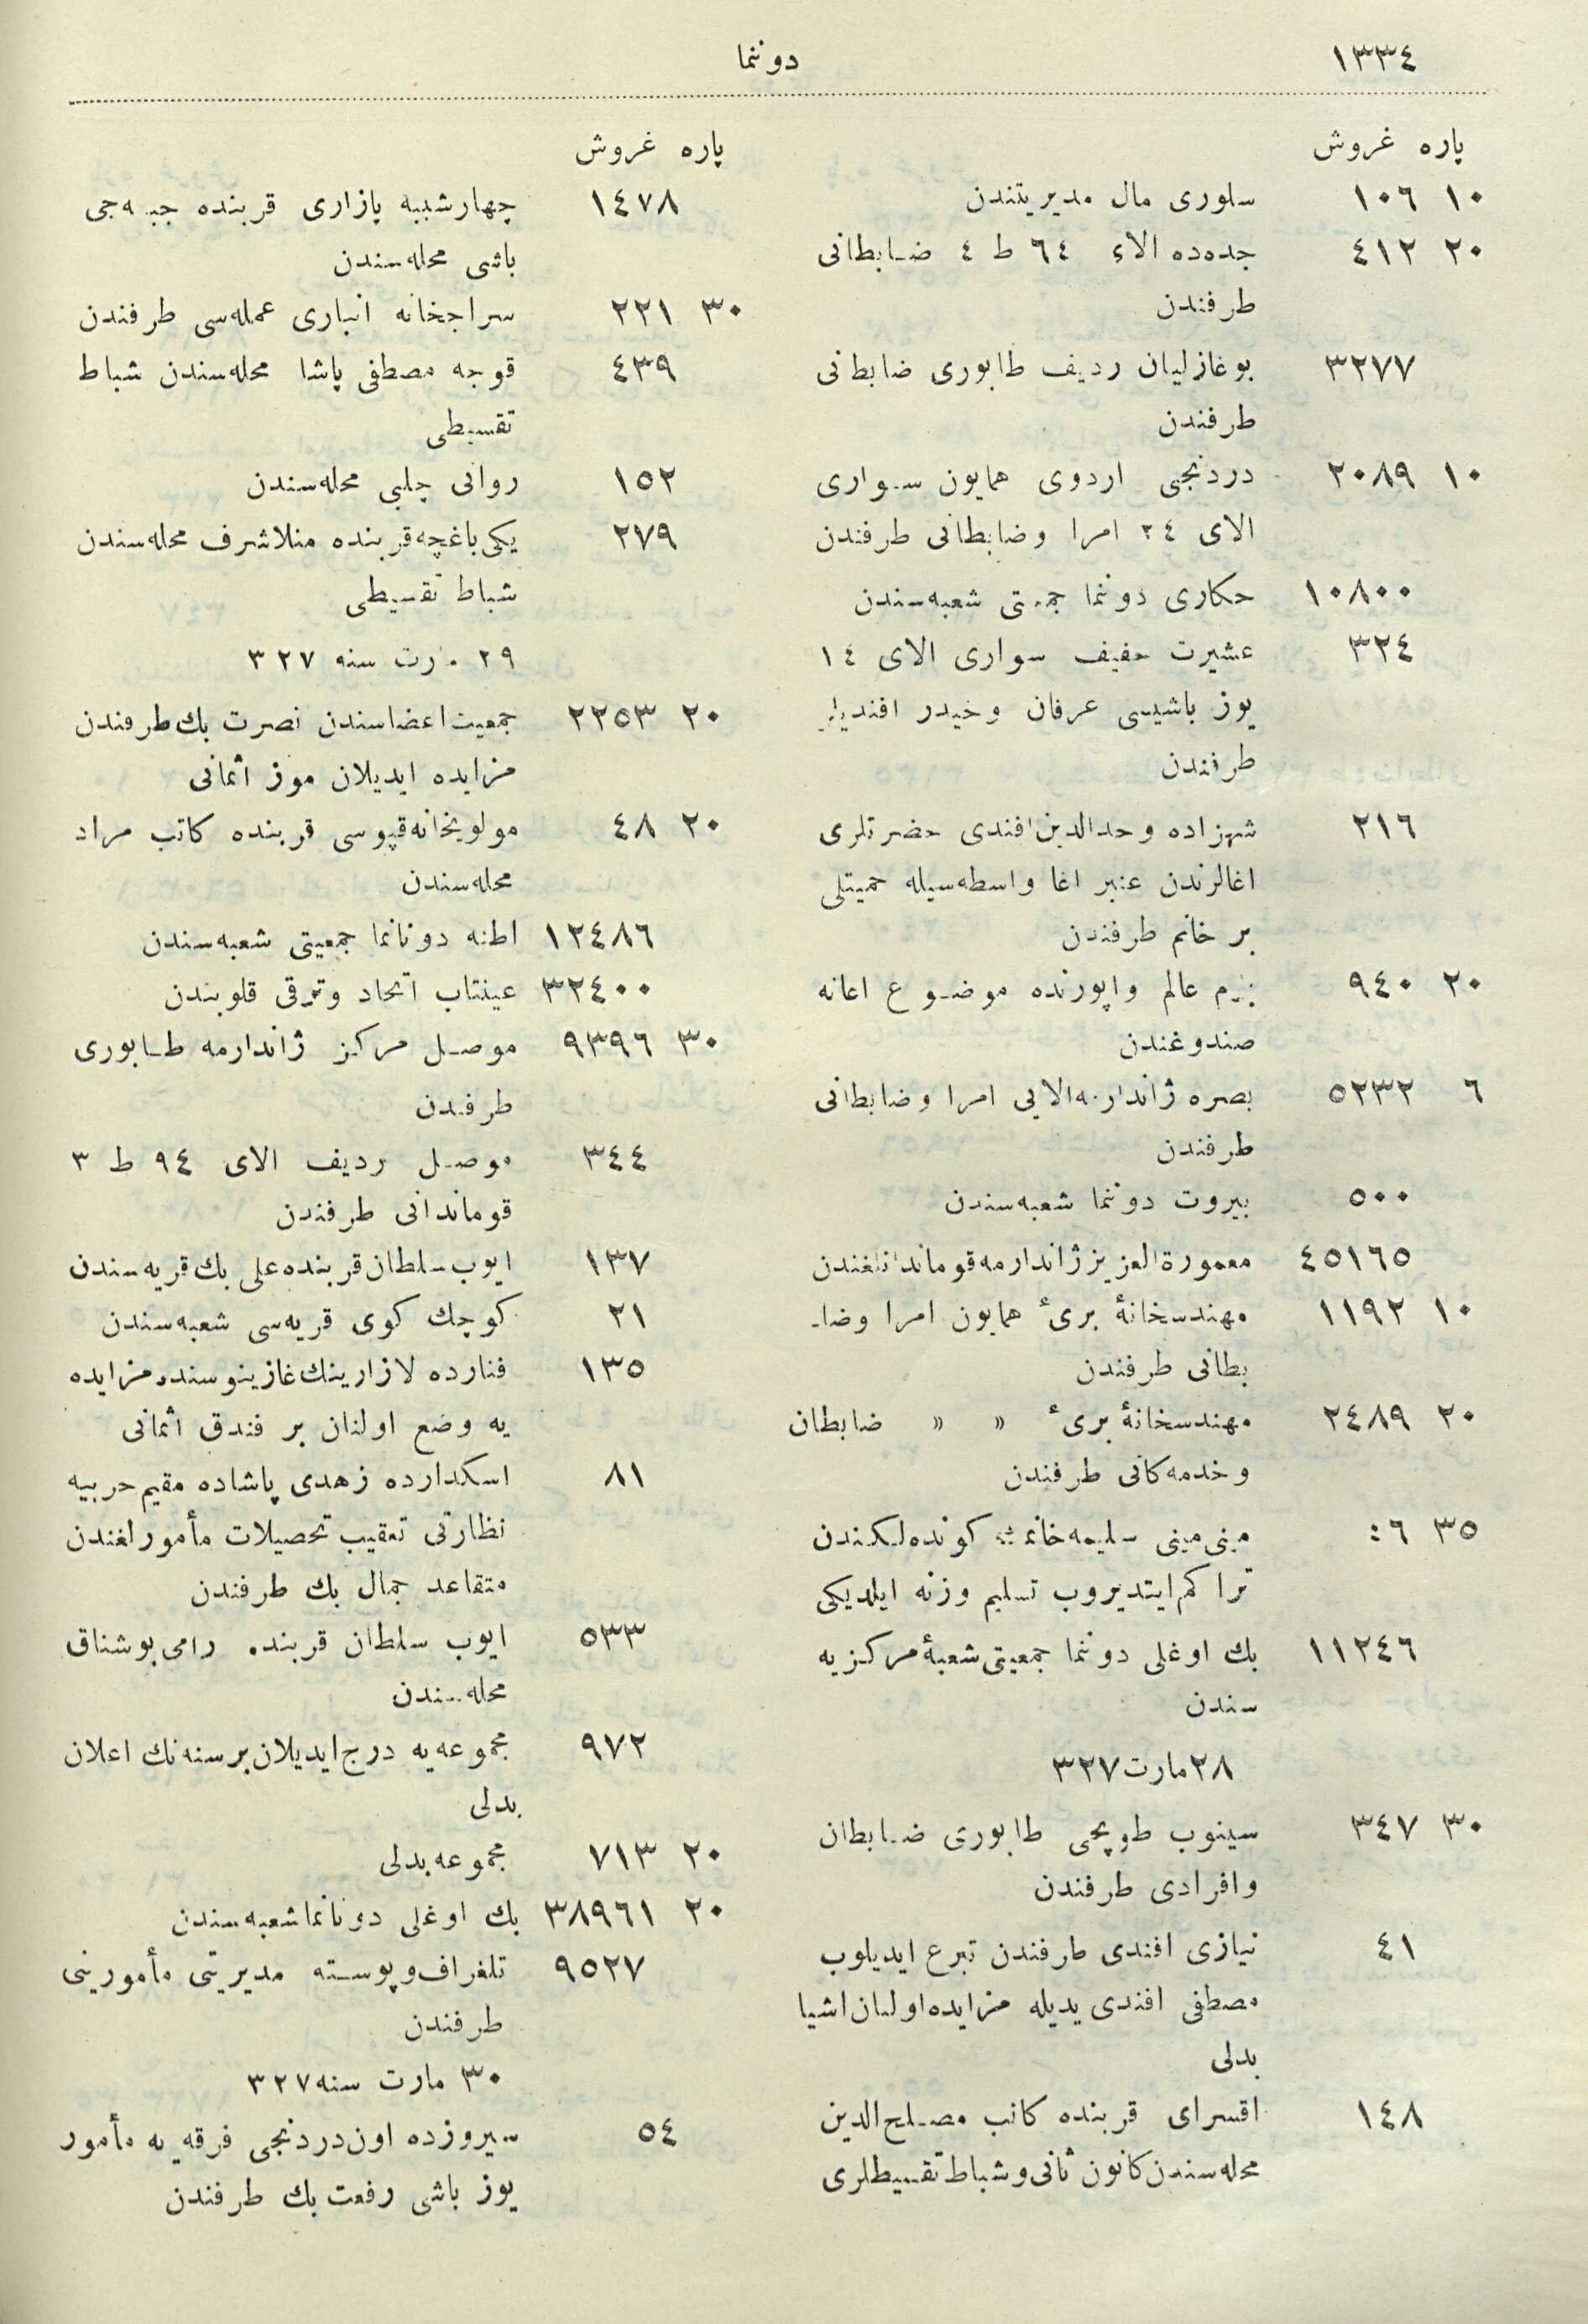 ١٣٣٤ دوننما
پاره غروش
١٠ ١٠٦ سلوری مال مدیریتندن
٢٠ ٤١٢ جده‌ده الای ٦٤ ط ٤ ضابطانی
طرفندن
٣٢٧٧ بوغازلیان ردیف طابوری ضابطانی
طرفندن
١٠ ٢٠٨٩ دردنجی اردوی همایون سواری
الای ٢٤ امرا وضابطانی طرفندن
١٠٨٠٠ حکاری دوننما جمعیتی شعبه‌سندن
٣٢٤ عشیرت خفیف سواری الای ١٤
یوز باشیسی عرفان وحیدر افندیلر
طرفندن
٢١٦ شهزاده وحدالدین افندی حضرتلری
اغالرندن عنبر اغا واسطه‌سیله حمیتلی
بر خانم طرفندن
٢٠ ٩٤٠ بزم عالم واپورنده موضوع اعانه
صندوغندن
٦ ٥٢٣٢ بصره ژاندارمه الایی امرا وضابطانی
طرفندن
٥٠٠ بیروت دوننما شعبه‌سندن
٤٥١٦٥ معمورة العزیز ژاندارمه قوماندانلغندن
١٠ ١١٩٢ مهندسخانهٔ بریٔ همایون امرا وضا-
بطانی طرفندن
٢٠ ٢٤٨٩ مهندسخانهٔ بریٔ » » ضابطان
وخدمه‌کانی طرفندن
٣٥ ٦: مینی مینی سلیمه خانمڭ کونده‌لکندن
تراکم ایتدیروب تسلیم وزنه ایلدیکی
١١٢٤٦ بك اوغلی دوننما جمعیتی شعبهٔ مرکزیه
سندن
٢٨ مارت ٣٢٧
٣٠ ٣٤٧ سینوب طوپجی طابوری ضابطان
وافرادی طرفندن
٤١ نیازی افندی طرفندن تبرع ایدیلوب
مصطفی افندی یدیله مزایده اولنان اشیا
بدلی
١٤٨ اقسرای قربنده کاتب مصلح‌الدین
محله‌سندن کانون ثانی وشباط تقسیطلری
پاره غروش
١٤٧٨ چهارشنبه پازاری قربنده جبه‌جی
باشی محله‌سندن
٣٠ ٢٢١ سراجخانه انباری عمله‌سی طرفندن
٤٣٩ قوجه مصطفی پاشا محله‌سندن شباط
تقسیطی
١٥٢ روانی چلبی محله‌سندن
٢٧٩ یکی باغچه قربنده منلاشرف محله‌سندن
شباط تقسیطی
٢٩ مارت سنه ٣٢٧
٢٠ ٢٢٥٣ جمعیت اعضاسندن نصرت بك طرفندن
مزایده ایدیلان موز اثمانی
٢٠ ٤٨ مولویخانه قپوسی قربنده کاتب مراد
محله‌سندن
١٢٤٨٦ اطنه دونانما جمعیتی شعبه‌سندن
٣٢٤٠٠ عینتاب اتحاد وترقی قلوبندن
٣٠ ٩٣٩٦ موصل مرکز ژاندارمه طابوری
طرفندن
٣٤٤ موصل ردیف الای ٩٤ ط ٣
قوماندانی طرفندن
١٣٧ ایوب سلطان قربنده علی بك قریه‌سندن
٢١ کوچك کوی قریه‌سی شعبه‌سندن
١٣٥ فنارده لازارینك غازینوسنده مزایده
یه وضع اولنان بر فندق اثمانی
٨١ اسکدارده زهدی پاشاده مقیم حربیه
نظارتی تعقیب تحصیلات مأمورلغندن
متقاعد جمال بك طرفندن
٥٣٣ ایوب سلطان قربنده رامی بوشناق
محله‌سندن
٩٧٢ مجموعه‌یه درج ایدیلان بر سنه‌نك اعلان
بدلی
٢٠ ٧١٣ مجموعه بدلی
٢٠ ٣٨٩٦١ بك اوغلی دونانما شعبه‌سندن
٩٥٢٧ تلغراف وپوسته مدیریتی مأمورینی
طرفندن
٣٠ مارت سنه ٣٢٧
٥٤ سیروزده اون دردنجی فرقه یه مأمور
یوز باشی رفعت بك طرفندن